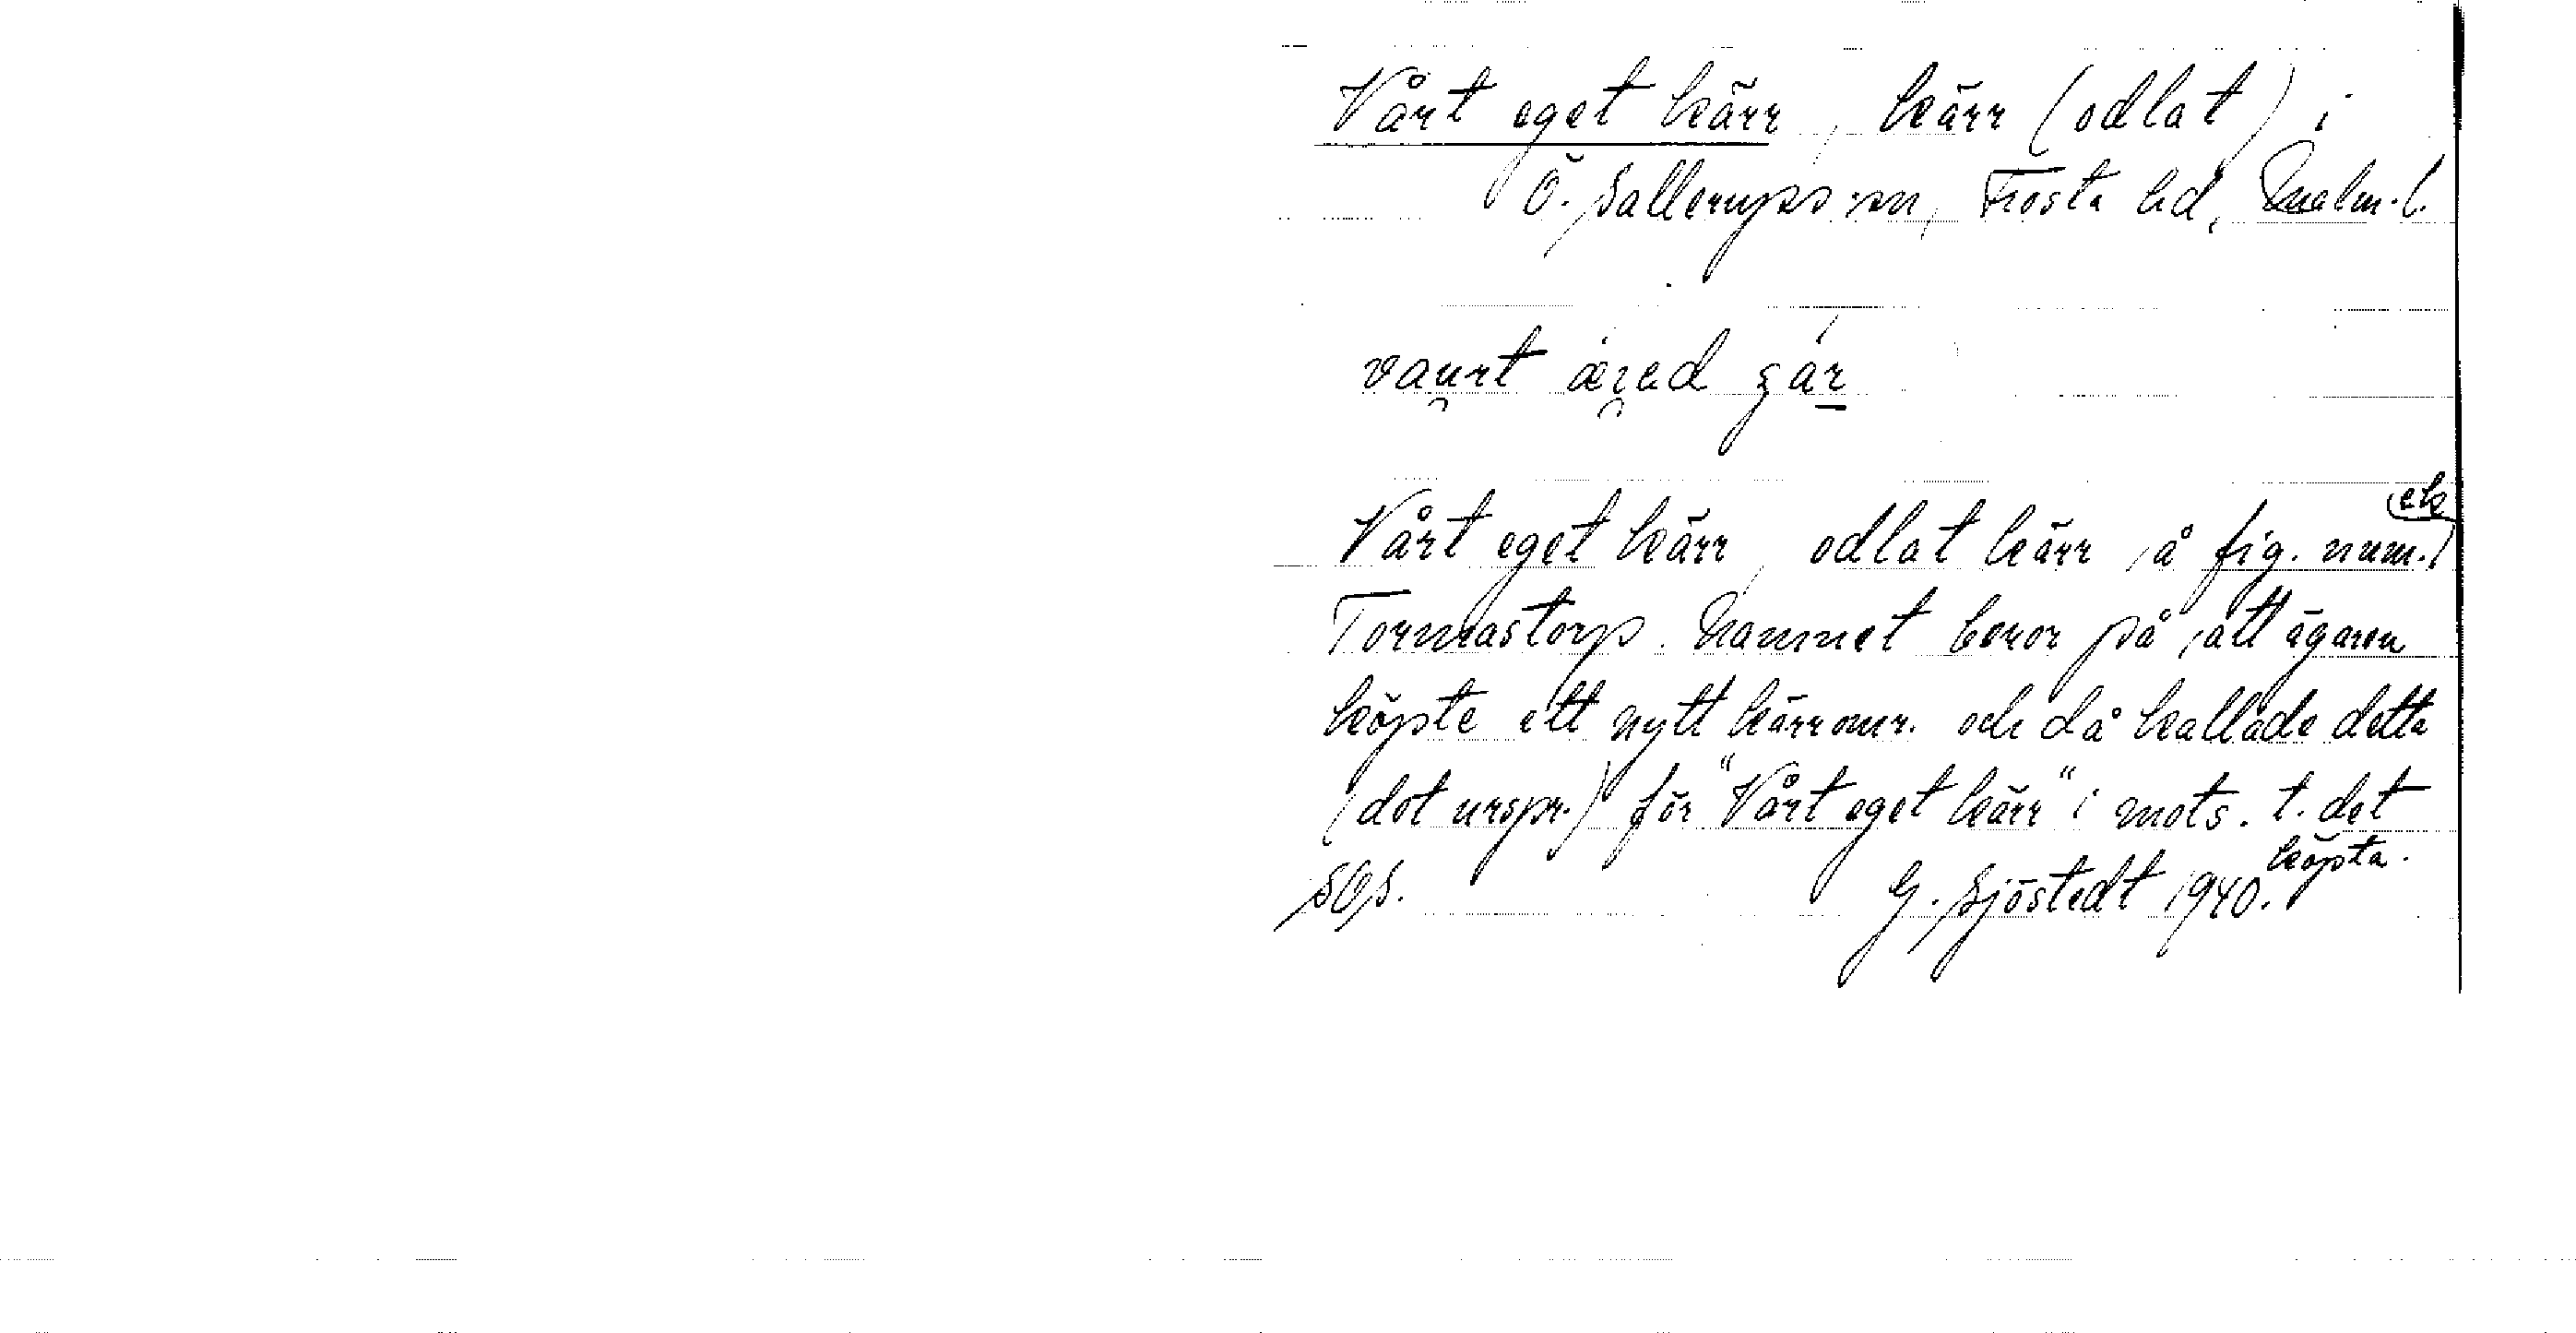 Vårt eget kärr, kärr (odlat) i
Ö. Sallerups sn, Frosta hd, Malm. l.
vau̯rt æi̯ed
Vårt eget kärr, odlat kärr å fig. num. ek
Tormastorp. Namnet beror på, att ägaren
köpte ett nytt kärromr. och då kallade detta
(det urspr.) för "Vårt eget kärr" i mots. t. det
köpta.
SOS. G. Sjöstedt 1940.